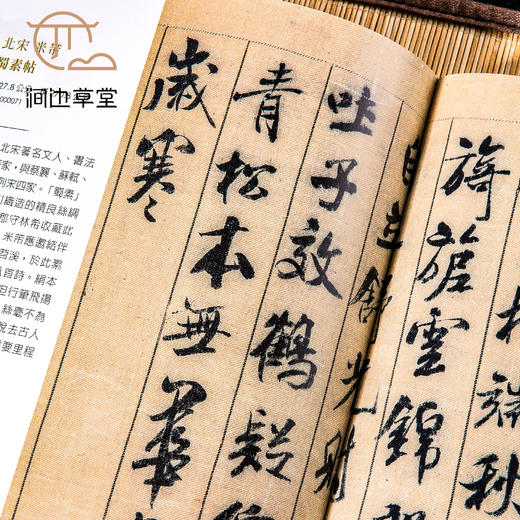 北宋 米芾
蜀素帖
27.8公
000071
北宋著名文人、書法
家，與蔡襄、蘇軾、
列宋四家。「蜀素」
織造的精良絲綢
郡守林希收藏此
米芾應邀結伴
苕溪，於此素
百詩。絹本
但行筆飛揚
絲毫不為
脫去古人
要里程
涧边草堂
端秋
旖旎雲錦
自立舒光射
吐子效鶴疑
青松本無華
歲寒